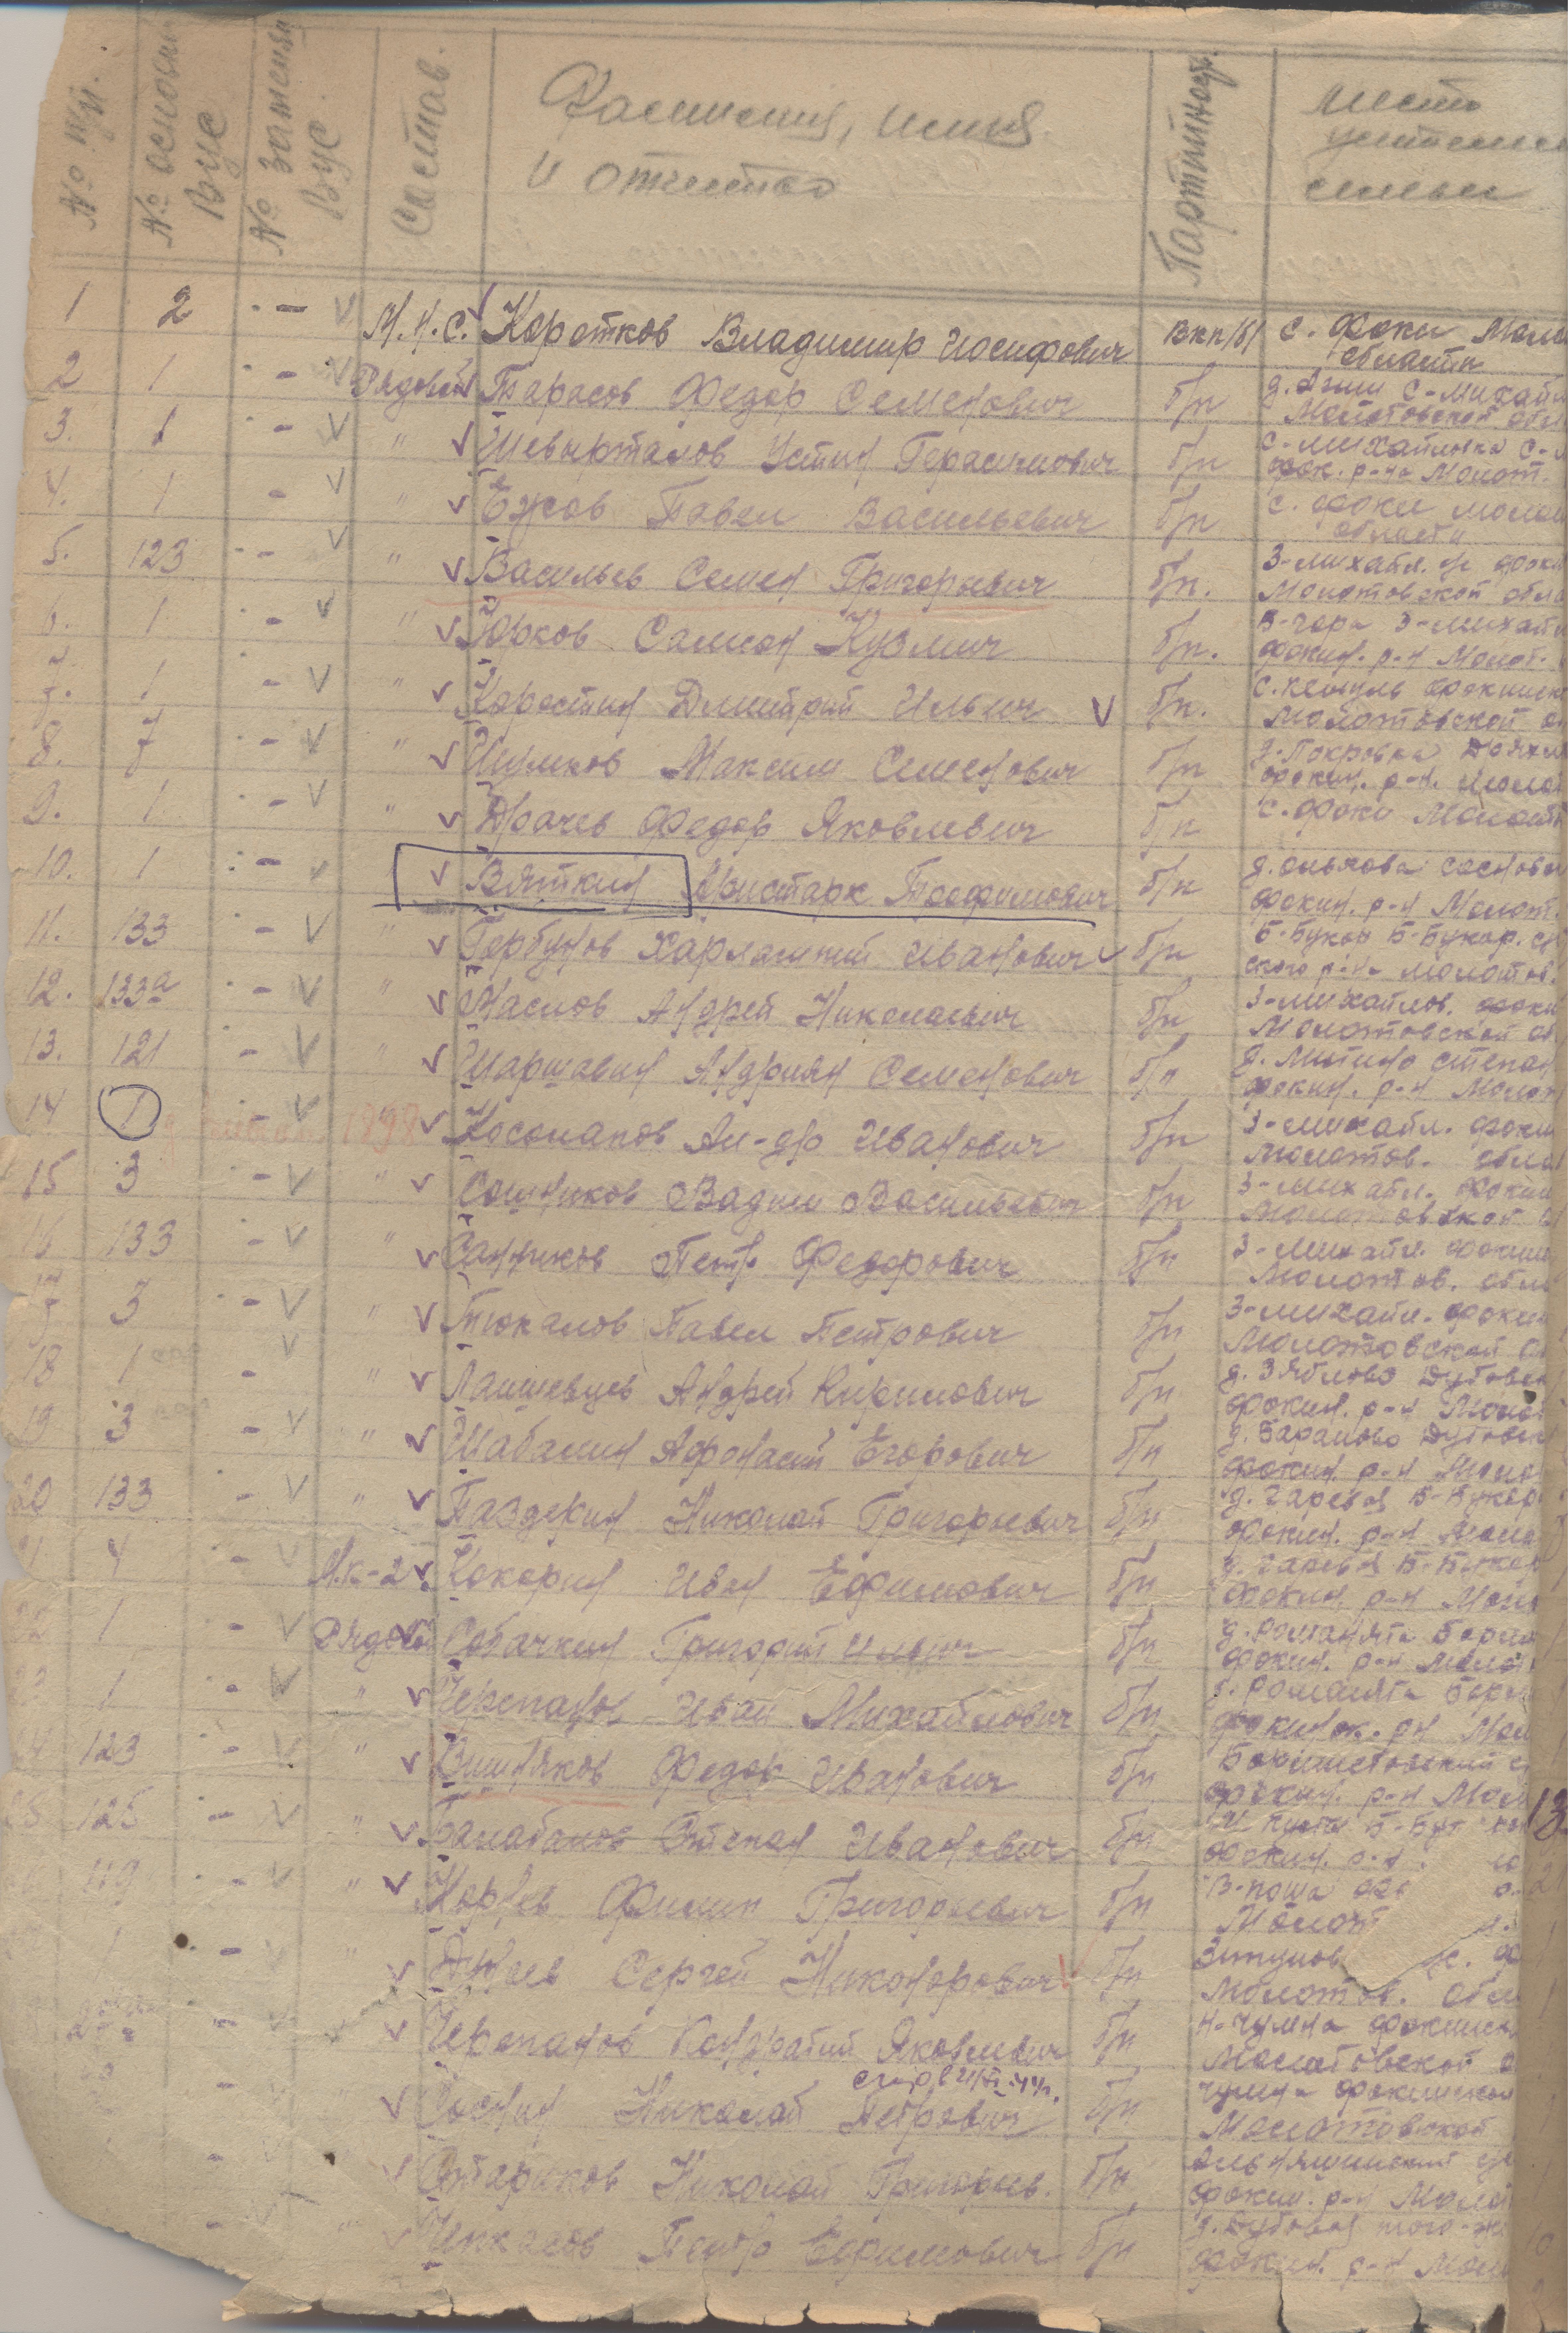 № п/п. № основн ВУС № замены ВУС. Состав. Фамилия, имя и отчество Партийност. место жительс семьи
1 2 - М.н.с. Коротков Владимир Иосифович ВКП/б/ с. Фоки Моло
области
2 1 - Рядовой Тарасов Федор Семенович б/п
Молотовской обл
3. 1 - " Шевырталов Устин Герасимович б/п с-михайловка с-
Фок. р-на Молот.
4. 1 - " Ежов Павел Васильевич б/п с. Фоки молот
области
5. 123 - " Васильев Семен Григорьевич б/п. З-михайл. Фоки
Молотовской обла
6. 1 - " Юрков Самсон Кузмич б/п. З-михайл
Фокин. р-н Молот.
7. 1 - " Коростин Дмитрий Ильич б/п. с. кемуль Фокинск
Молотовской о
8. 7 - " Шумков Максим Семенович б/п д. Покровка
Фокин. р-н. Моло
9. 1 - " Драчев Федор Яковлевич б/п с. Фоки Молот
10. 1 - Вяткин Аристарк Трофимович б/п д. ольхова соснов
Фокин. р-н Молот.
11. 133 - " Горбунов Харлампий Иванович б/п Б-Букор Б-Букор. с
ского р-на Молотов.
12. 133а - " Маслов Андрей Николаевич б/п З-михайлов. Фоки
Молотовской об
13. 121 - " Шаршавин Андриян Семенович б/п д. Митино степан
Фокин. р-н Молот
14 1 - 1898 Косолапов Ал-др Иванович б/п З-михайл. Фоки
Молотов. обла
15 3 - " Сошников Вадим Васильевич б/п З-михайл. Фоки
Молотовской
16 133 - " Санников Петр Федорович б/п З-михайл. Фокин
Молотов. обл
17 3 - " Тюкалов Павел Петрович б/п З-михайл. Фокин
Молотовской о
18 1 - " Лапшевцев Андрей Кирилович б/п д. Зяблово Дубовск
Фокин. р-н Моло
19 3 - " Шабалин Афонасий Егорович б/п д. Бараново Дубовск
Фокин. р-н Моло
20 133 - " Паздекин Николай Григорьевич б/п д. Гаревая Б-Букор
Фокин. р-н Моло
21 4 - М.к-2 Кокорин Иван Ефимович б/п д. Гаревая Б-Букор
Фокин. р-н Моло
22 1 - Рядовой Собачкин Григорий Ильич б/п д. Романята Борм
Фокин. р-н Моло
23 1 - " Черепанов Иван Михайлович б/п д. Романята
Фокинск. р-н Мол
24 123 - " Вишняков Федор Иванович б/п
Фокин. р-н Мол 13
25 125 - " Балабанов Степан Иванович б/п
Фокин. р-н
119 - " Корнев Филип Григорьевич б/п В-поша
Молот
1 - " Дунаев Сергей Никонорович б/п
Молотов. обл
- Черепанов Кондратий Яковлевич б/п Н-чумна Фокинск
Молотовской о
" Соснин Николай Петрович б/п чумна Фокинской
Молотовской
Стариков Николай Григорьев. б/п Альняшинский
Фокин. р-н Моло
- " Чикасов Петр Ефимович б/п д. Дубовая того-же
Фокин. р-н Моло